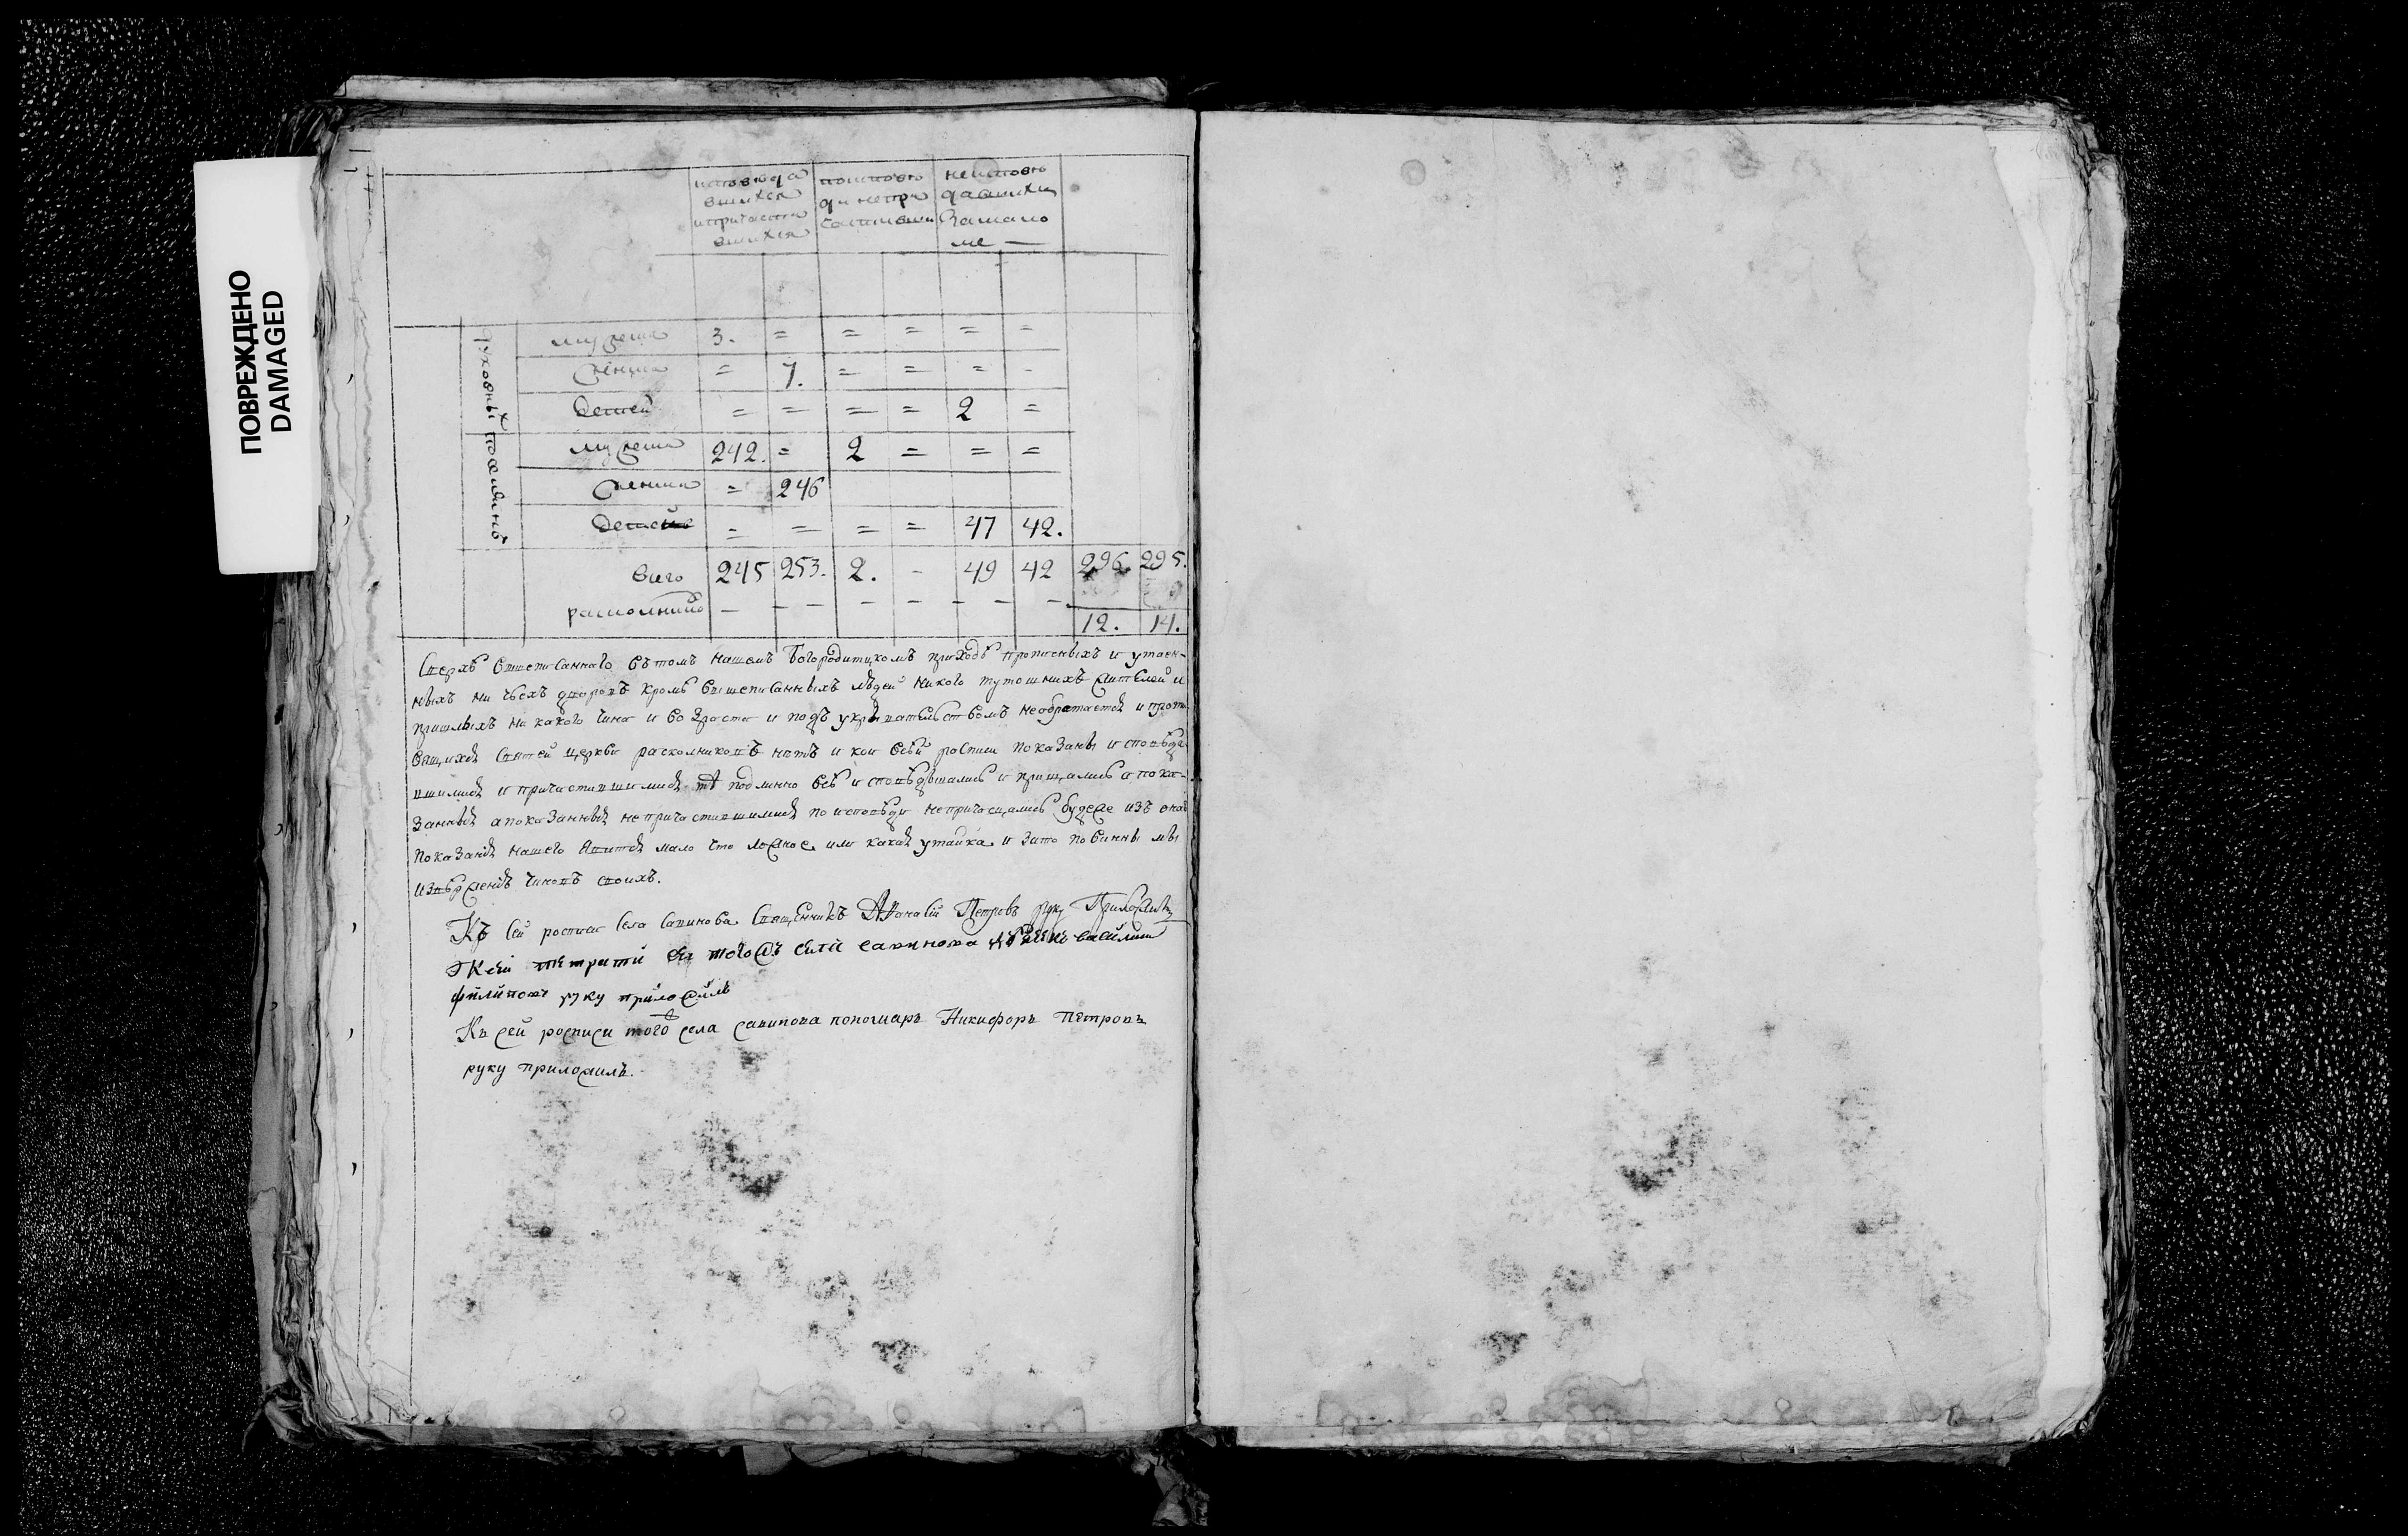 ПОВРЕЖДЕНО
DAMAGED
исповеда
вшихся
и причасти
вшихся
поисповѣ
ди непри
частивши
неисповѣ
давшихся
замало
ме —
духовныхъ
мужеска 3. = = = = =
женска = 7. = = = -
детей = = = = 2 =
поселянъ
мужеска 242. = 2 = = =
женска = 246
детей = = = = 47 42.
всего 245 253. 2. - 49 42 296. 295.
расколниковъ — - - - - - - -
12. 14.
Сверхъ вышеписанного въ томъ нашемъ Богородицкомъ приходѣ прописныхъ и утаен-
ныхъ ни чьехъ дворовъ кромѣ вышеписанныхъ людей никого тутошнихъ жителей и
пришлыхъ ни какого чина и возраста и подъ укрывателством необретается и проти
вящихся святей церкви расколниковъ нѣтъ и кои въ сей росписи показаны исповѣда
вшимися и причастившимися тѣ подлинно все исповѣдывались и прищались а пока-
занныя а показанныя непричастившимися по исповѣди непричащались будеже изъ онаго
показания нашего явится мало что ложное или какая утайка и за то повинны мы
извержения чиновъ своихъ.
Къ сей росписи села Савинова Священникъ Афанасій Петровъ руку Приложилъ
К сей тетрати тогожъ села савинова василии
филиповъ руку приложилъ
Къ сей росписи того села савинова пономарь Никифоръ Петровъ
руку приложилъ.